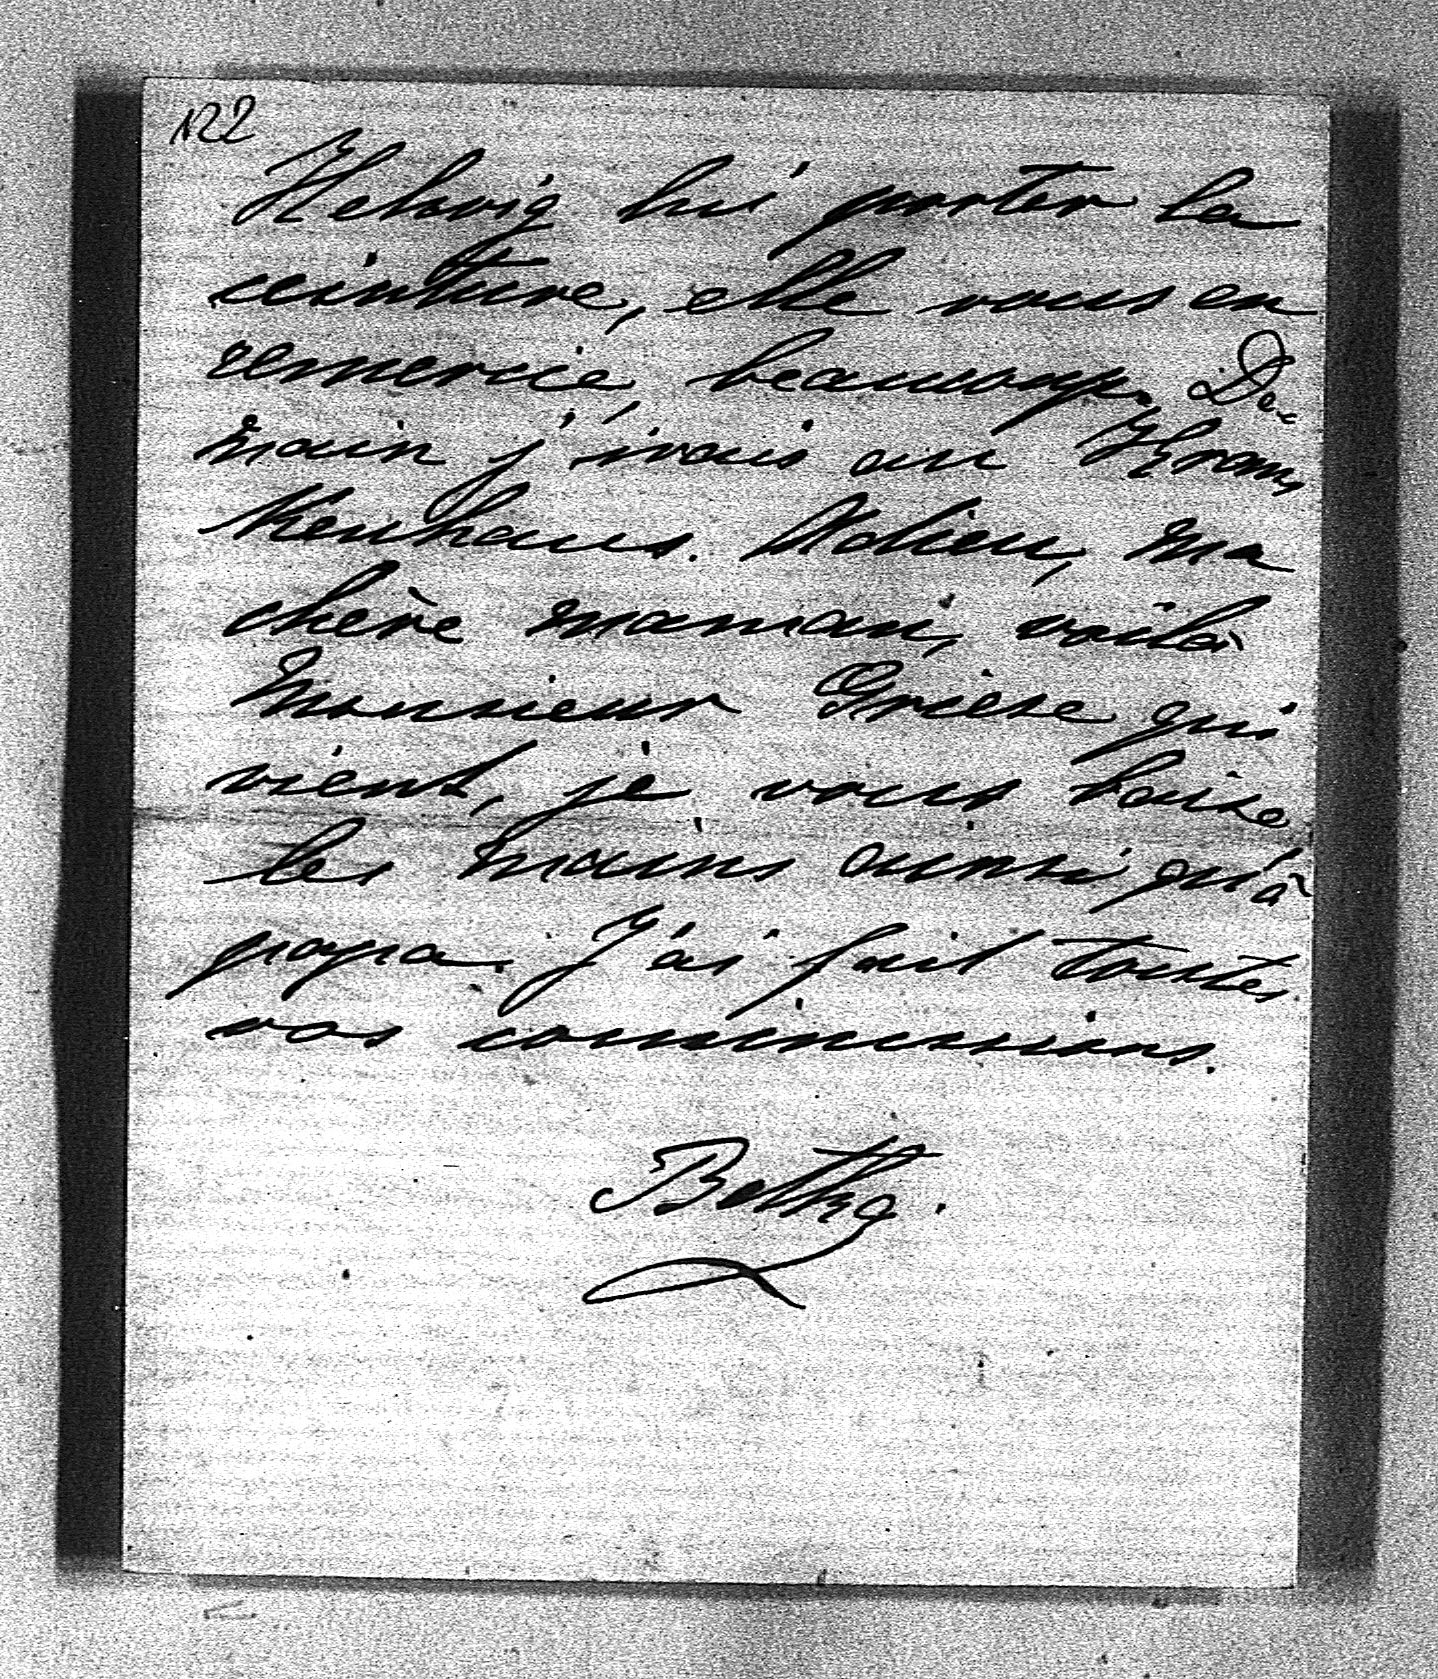 122
Helwig lui porter la
ceinture, elle vous en
remercie beaucoup. De-
main j'irais au Kran-
kenhaus. Adieu, ma
chère maman, voilà
Monsieur Griese qui
vient, je vous baise
les mains ainsi qu'à
papa. J'ai fait toutes
vos commissions.
Bethg.